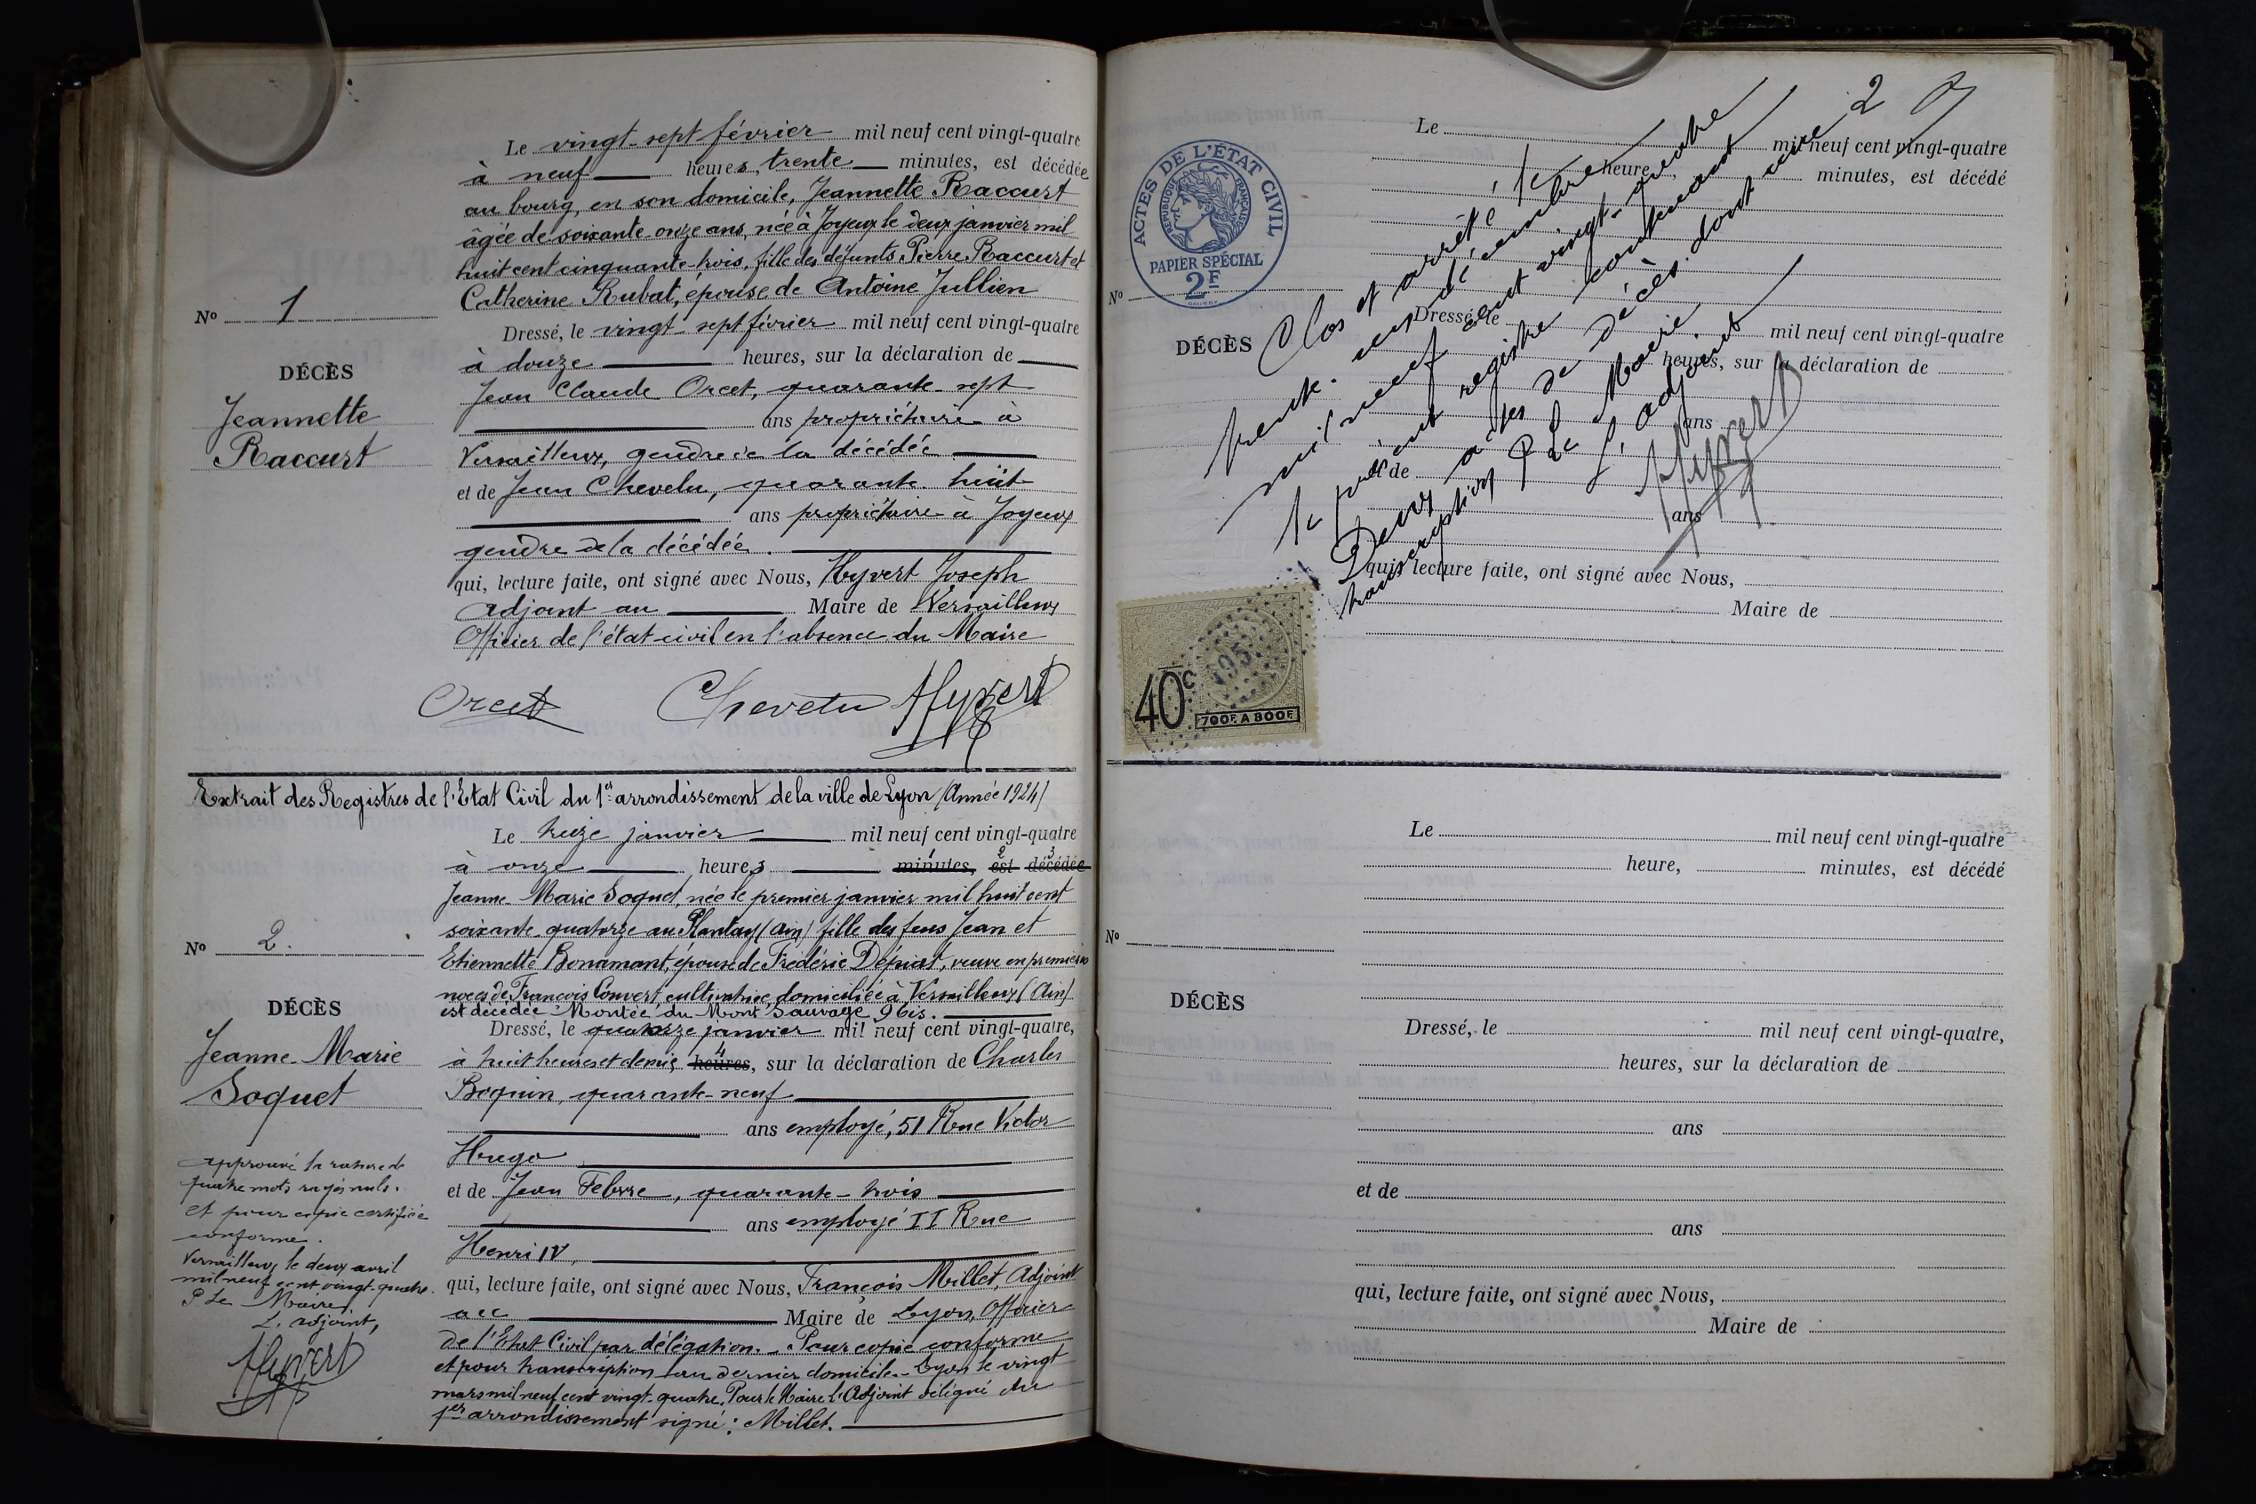 Le vingt-sept février mil neuf cent vingt-quatre
à neuf heures, trente minutes, est décédée
au bourg, en son domicile, Jeannette Raccurt
âgée de soixante-onze ans, née à Joyeux le deux janvier mil
huit cent cinquante-trois, fille des défunts Pierre Raccurt et
Catherine Rubat, épouse de Antoine Jullien
Nº 1
DÉCÈS
Jeannette
Raccurt
Dressé, le vingt-sept février mil neuf cent vingt-quatre
à douze heures, sur la déclaration de
Jean Claude Orcet, quarante-sept
ans propriétaire à
Versailleux, gendre de la décédée
et de Jean Chevelu, quarante-huit
ans propriétaire à Joyeux
gendre de la décédée.
qui, lecture faite, ont signé avec Nous, Hyvert Joseph
adjoint au Maire de Versailleux
Officier de l'état-civil en l'absence du Maire
Orcet Chevelu Hyvert
Extrait des Registres de l'Etat Civil du 1er arrondissement de la ville de Lyon (Année 1924)
Le treize janvier mil neuf cent vingt-quatre
à onze heures 1 2 3 minutes, est décédée
Jeanne-Marie Soquet, née le premier janvier mil huit cent
soixante-quatorze au Plantay (Ain) fille des feus Jean et
Etiennette Bonamant, épouse de Frédéric Dépiat, veuve en premières
noces de François Convert, cultivatrice, domiciliée à Versailleux (Ain)
est décédée Montée du Mont Sauvage 9 bis.
Nº 2.
DÉCÈS
Jeanne-Marie
Soquet
Dressé, le quatorze janvier mil neuf cent vingt-quatre,
à huit heures et demie 4 heures, sur la déclaration de Charles
Bequin, quarante-neuf
ans employé, 51 Rue Victor
Hugo
et de Jean Febvre, quarante-trois
ans employé II Rue
Henri IV,
qui, lecture faite, ont signé avec Nous, François Millet, Adjoint
au Maire de Lyon, Officier
de l'Etat Civil par délégation. - Pour copie conforme
et pour transcription au dernier domicile. - Lyon le vingt
mars mil neuf cent vingt-quatre. Pour le Maire l'Adjoint délégué du
1er arrondissement signé: Millet.
approuvé la rature de
quatre mots rayés nuls.
et pour copie certifiée
conforme.
Versailleux le deux avril
mil neuf cent vingt-quatre.
P Le Maire,
L'adjoint,
Hyvert
2
Clos et arrêté, le
trente-un décembre
mil neuf cent vingt-quatre
le présent registre contenant
Deux actes de décès dont une
transcription
P Le Maire.
L'adjoint
Hyvert
ACTES DE L'ÉTAT CIVIL
RÉPUBLIQUE FRANÇAISE
PAPIER SPÉCIAL
2F
Le mil neuf cent vingt-quatre
heure, minutes, est décédé
Nº
DÉCÈS
Dressé, le mil neuf cent vingt-quatre
heures, sur la déclaration de
ans
et de
ans
qui, lecture faite, ont signé avec Nous,
Maire de
195
40c
700F. A 800F.
Le mil neuf cent vingt-quatre
heure, minutes, est décédé
Nº
DÉCÈS
Dressé, le mil neuf cent vingt-quatre,
heures, sur la déclaration de
ans
et de
ans
qui, lecture faite, ont signé avec Nous,
Maire de